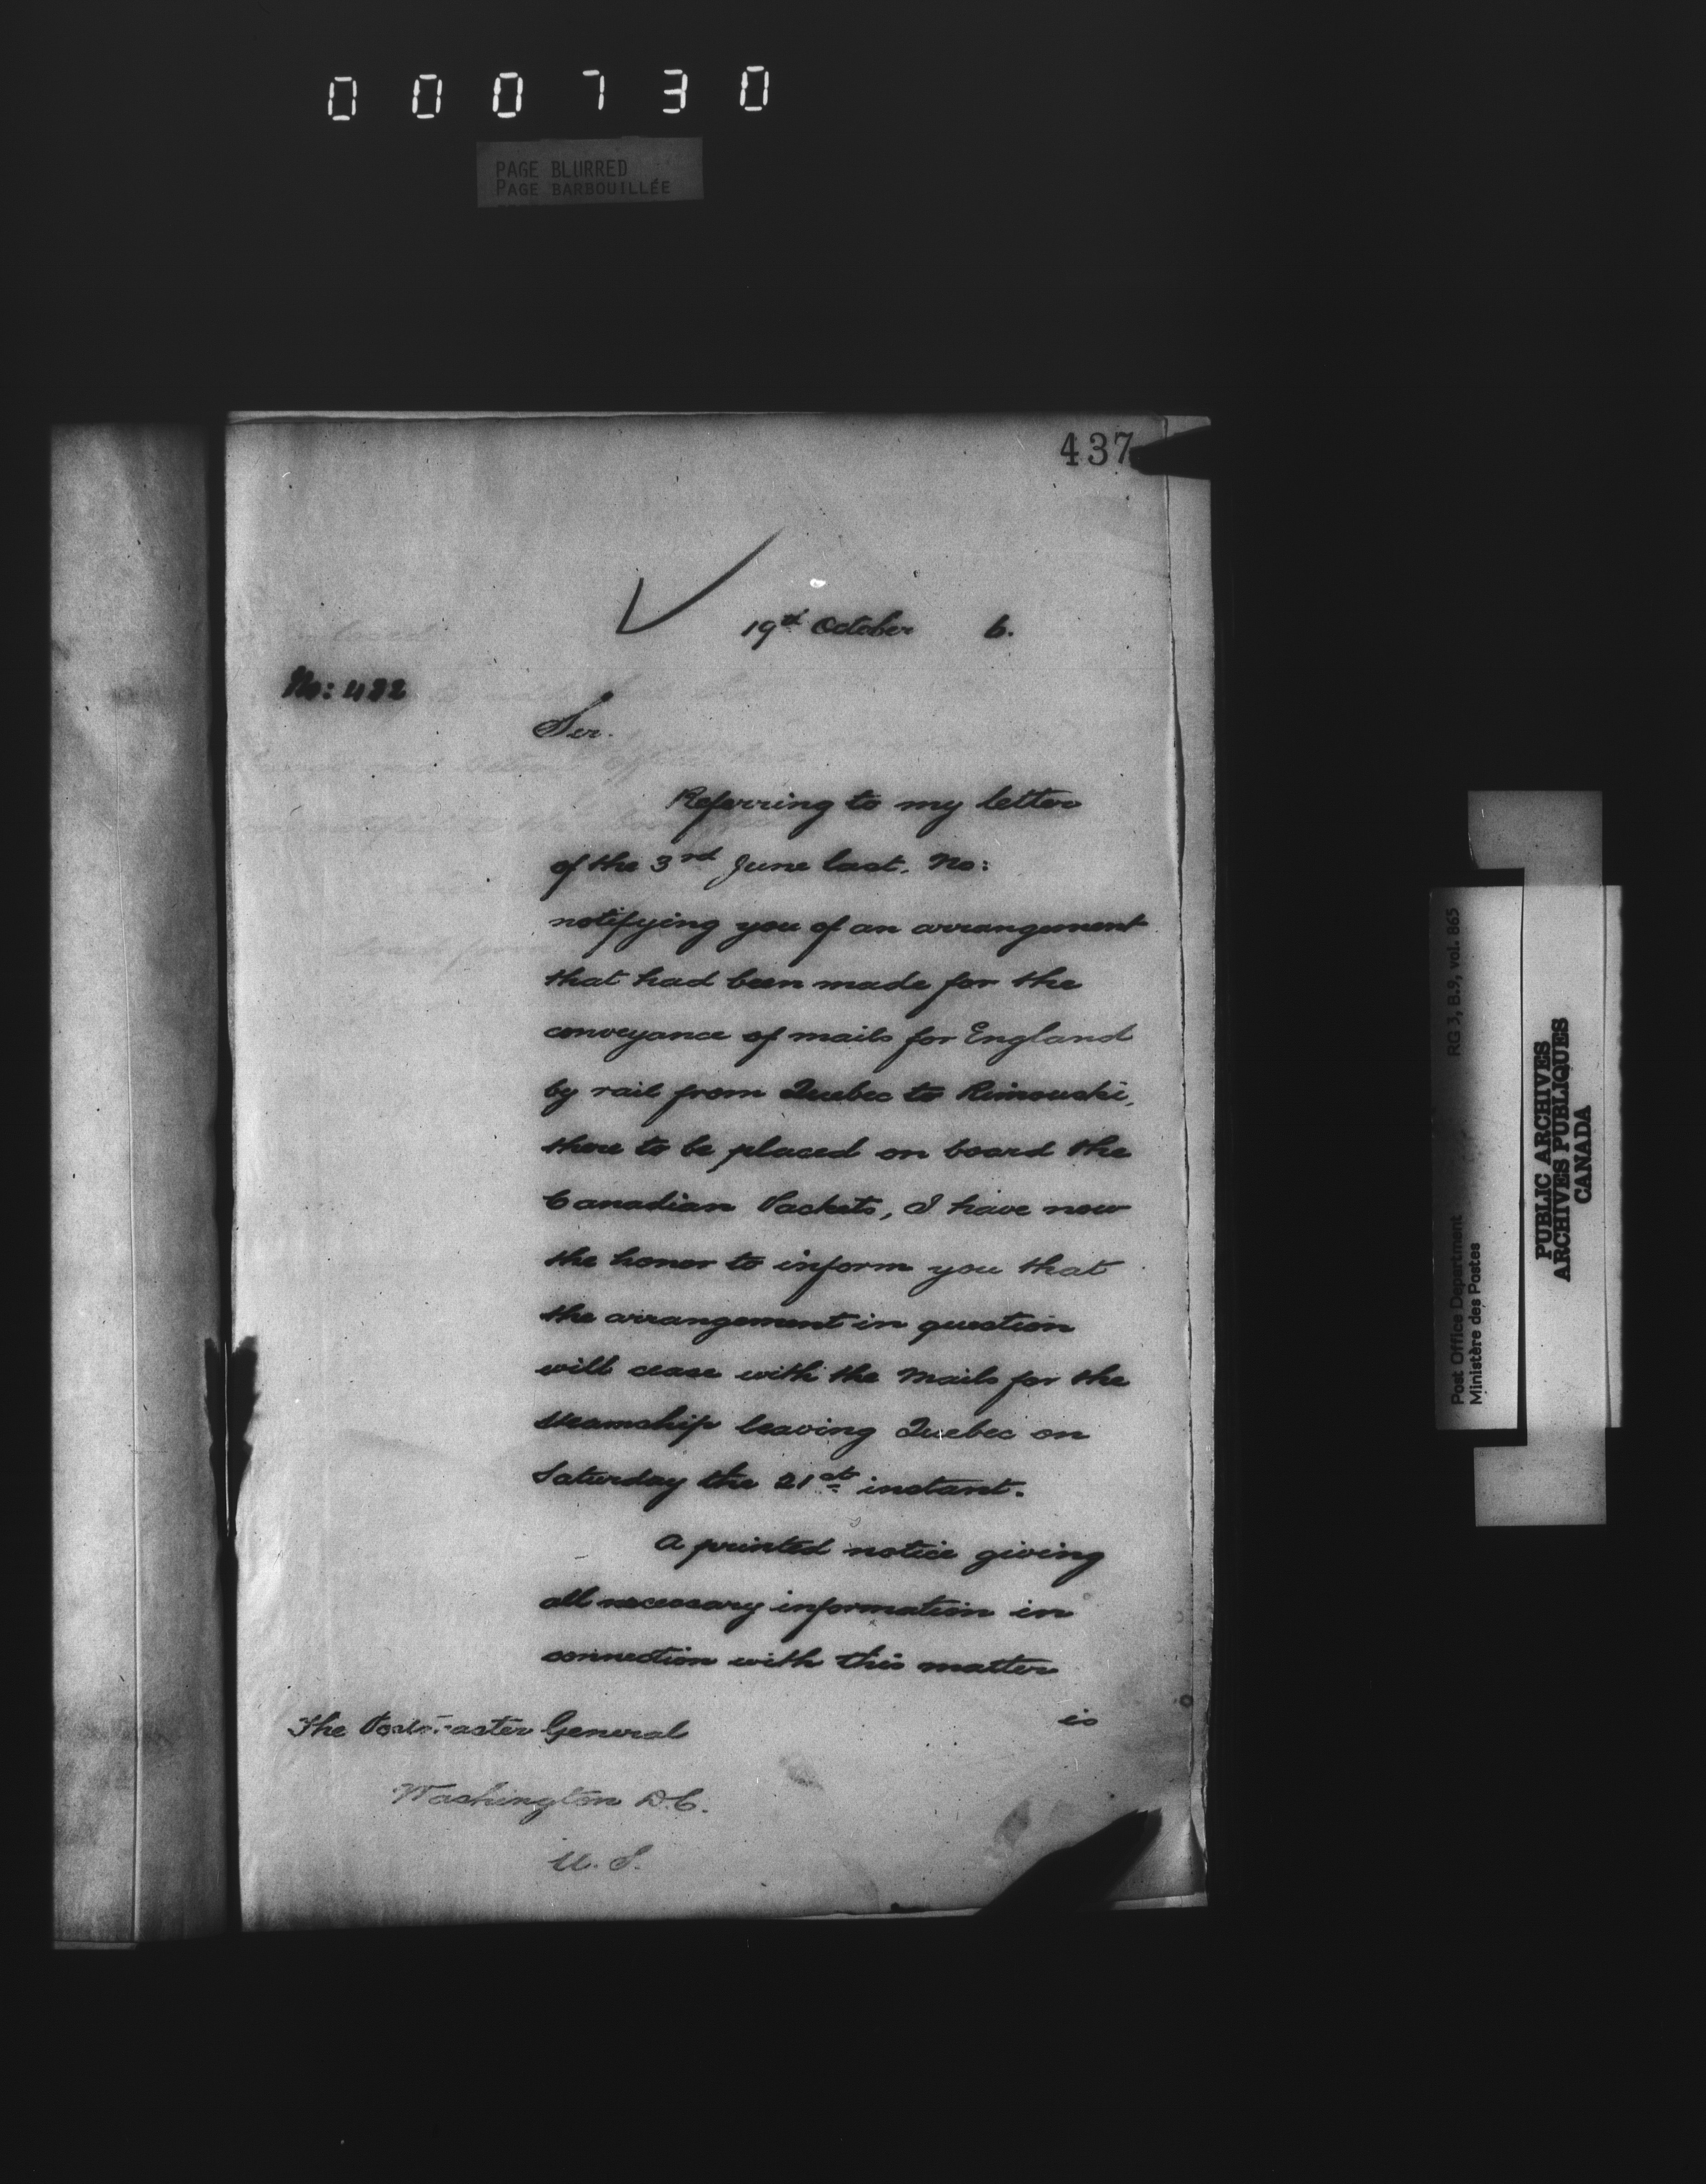 000730
PAGE BLURRED
PAGE BARBOUILLÉE
437
19th October 6.
No: 422
Sir.
Referring to my letter
of the 3rd June last. No:
notifying you of an arrangement
that had been made for the
conveyance of mails for England
by rail from Quebec to Rimouski,
there to be placed on board the
Canadian Packets, I have now
the honor to inform you that
the arrangement in question
will cease with the Mails for the
steamship leaving Quebec on
Saturday the 21st instant.
A printed notice giving
all necessary information in
connection with this matter
is
The Postmaster General
Washington D.C.
U. S.
RG 3, B.9, vol. 865
Post Office Department
Ministère des Postes
PUBLIC ARCHIVES
ARCHIVES PUBLIQUES
CANADA